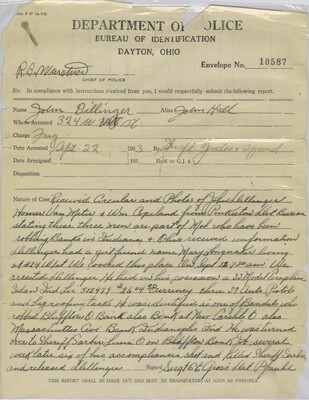 DEPARTMENT OF POLICE
BUREAU OF IDENTIFICATION
DAYTON, OHIO
Envelope No. 10587
CHIEF OF POLICE
Sir: In compliance with instructions received from you, I would respectfully submit the following report.
Name John Dillinger Alias John Hall
Where Arrested 324 W
Charge Fug
Date Arrested Sept 22 1933
Date Arraigned 193 Held to G.J. $
Disposition
Nature of Case Received Circular and Photos of John Dillinger
Homer Van Meter & Wm Copeland from Pinkerton Det Bureau
stating these three men are part of Mob who have been
robbing Banks in Indiana & Ohio received information
Dillinger had a girl friend name Mary living
at 324 W We located this place on Sept and We
arrested Dillinger He had in his possession a 33 Model
Sedan Ind Lic currency three 38 Auto Pistols
and bag roofing tacks He was identified as one of Bandits who
robbed Bluffton O Bank also Bank at New Carlisle O also
Massachusetts Ave Bank Indianapolis Ind He was turned
over to Sheriff Sarber Lima O on Bluffton Bank Job several
week later six of his accomplices shot and killed Sheriff Sarber
and released Dillinger
Signed Sergt
THIS REPORT SHALL BE MADE OUT AND SENT TO HEADQUARTERS AS SOON AS POSSIBLE.